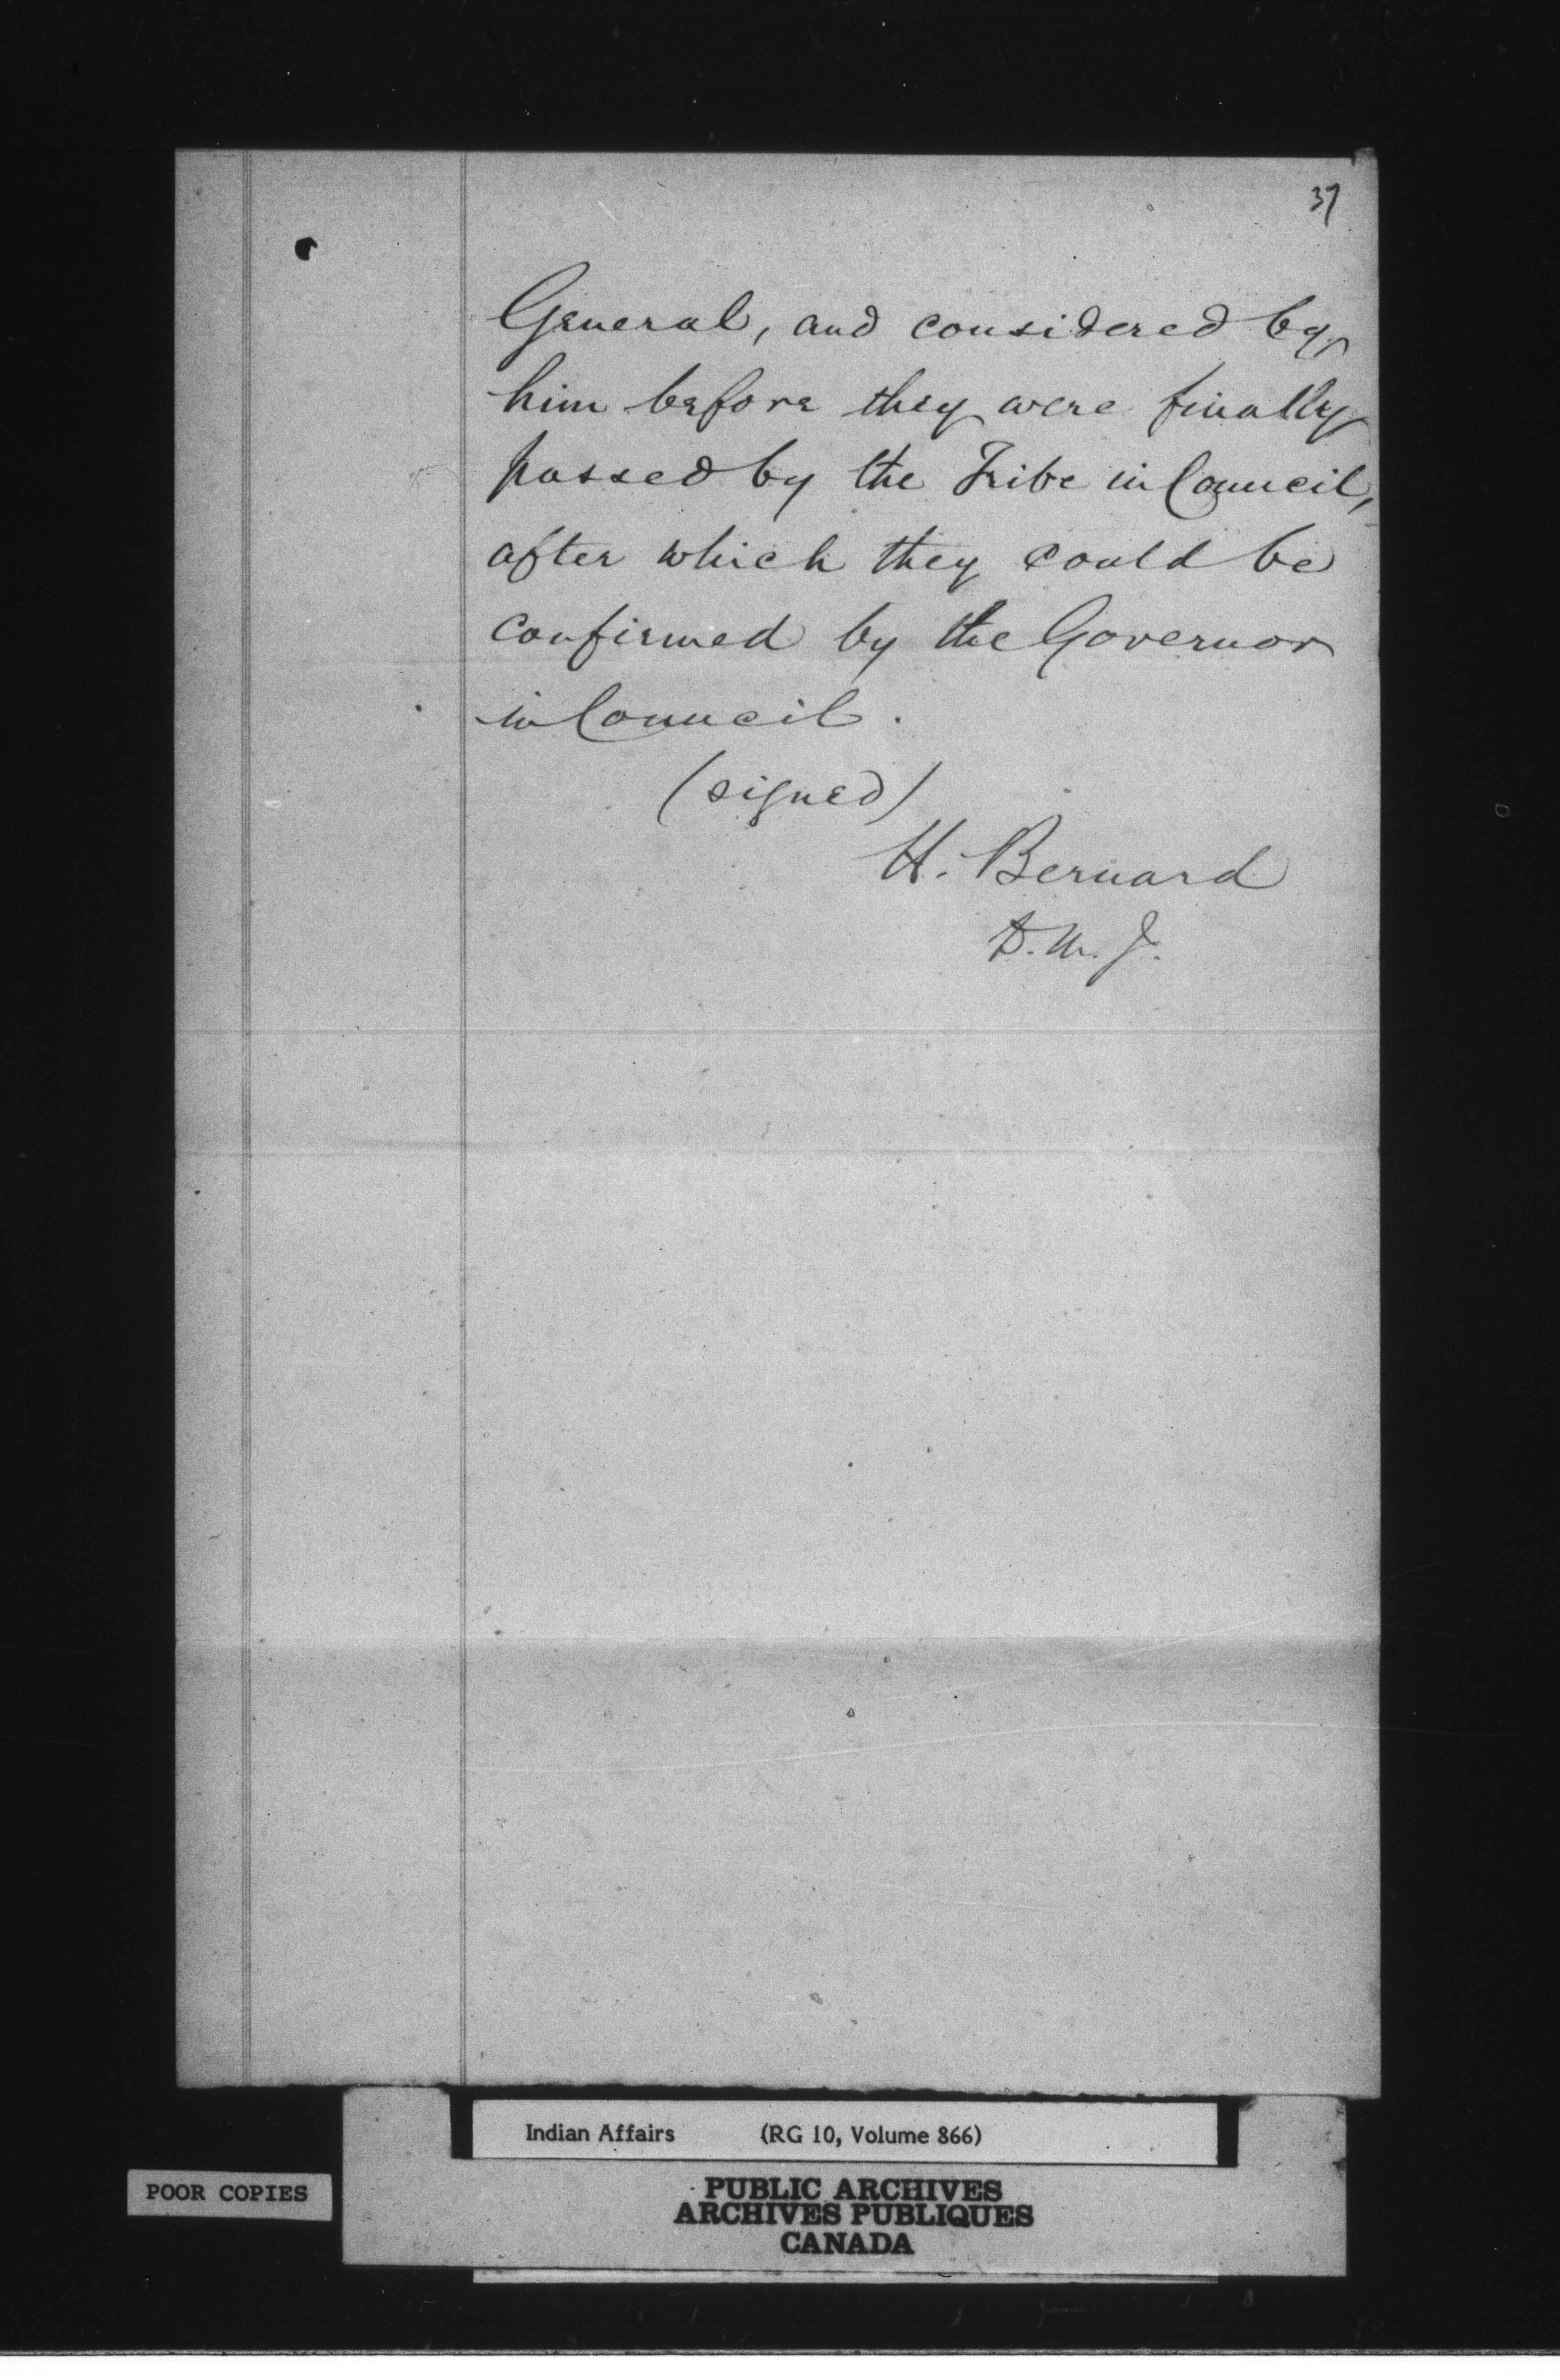 37
General, and considered by
him before they were finally
passed by the Tribe in Council,
after which they could be
confirmed by the Governor
in Council.
(signed)
H. Bernard
D. M. J.
Indian Affairs (RG 10, Volume 866)
POOR COPIES
PUBLIC ARCHIVES
ARCHIVES PUBLIQUES
CANADA